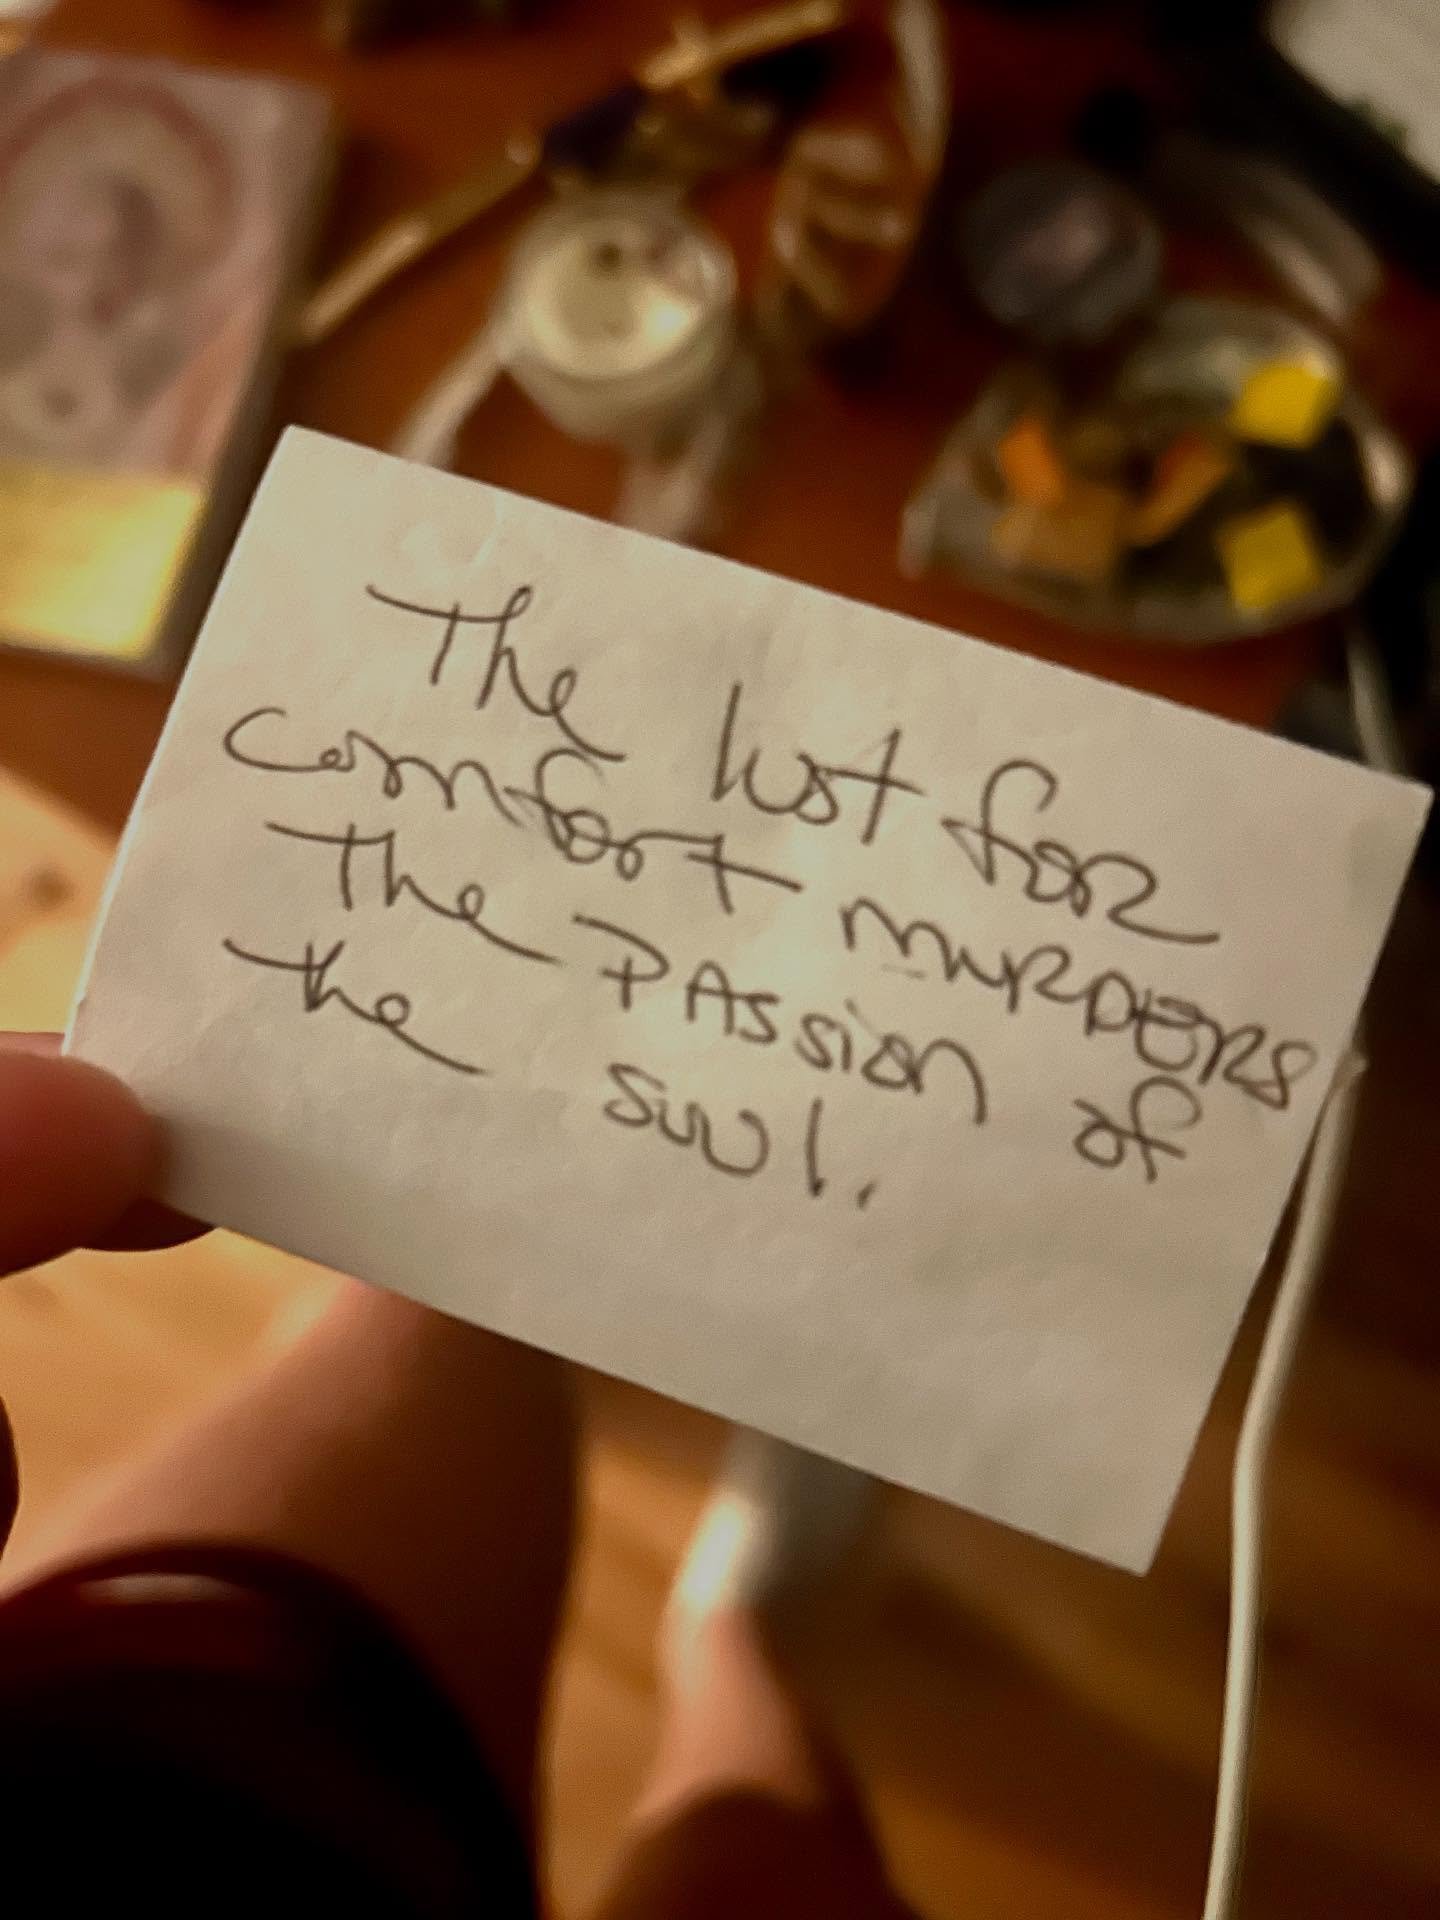 The lust for
comfort MURDERS
The PASSion of
the soul.